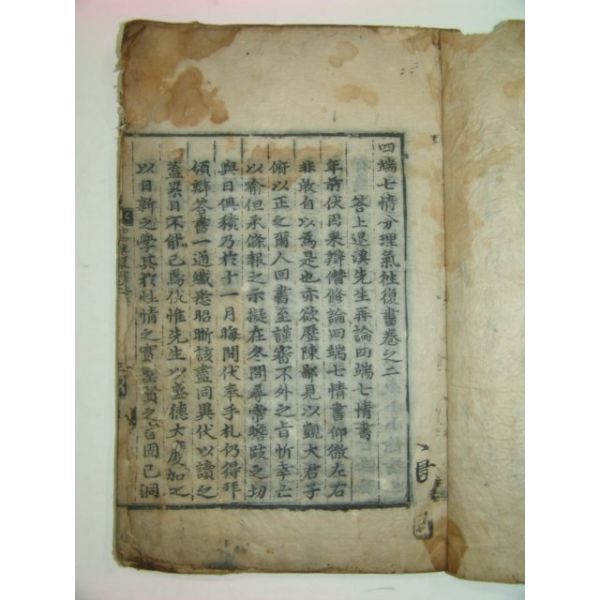 四端七情分理氣往復書卷之二
答上退溪先生再論四端七情書
年前伏因果辯僭修論四端七情書仰徹左右
非敢自以爲是也亦欲歷陳鄙見以觀大君子
俯以正之爾人回書至謹審不外之旨忻幸亡
以喩但承條報之示擬在冬間尋常蹺跂之切
與日俱積乃於十一月晦間伏奉手札仍得拜
領辯答書一通纖悉昭晰該盡同異伏以讀之
蓋累日不能已焉伏惟先生以盛德大度加之
以日新之學其於性情之實聖賢之旨固已洞